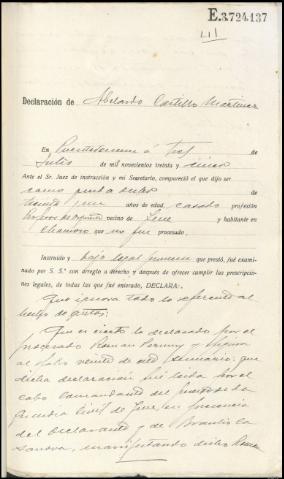 E.3.724.137
Declaración de Abelardo Castillo Martinez
En Puentedeume á tres de
Julio de mil novecientos treinta y cinco
Ante el Sr. Juez de instrucción y mi Secretario, compareció el que dijo ser
como queda dicho de
treinta y un años de edad, casado profesión
vecino de Jene y habitante en
Chamoso que no fue procesado.
Instruido y bajo legal que prestó, fué examinado
por S. Sª con arreglo a derecho y después de ofrecer cumplir las prescripciones
legales, de todas las que fué enterado, DECLARA:
Que ignora todo lo referente al
hecho de autos:
Que es cierto lo declarado por el
procesado Roman
al folio veinte de este sumario: que
dicha declaración fué leida por el
cabo Comandante del puesto de la
Guardia Civil de Jene, en presencia
del declarante y de Braulio
manifestando dicho Roman